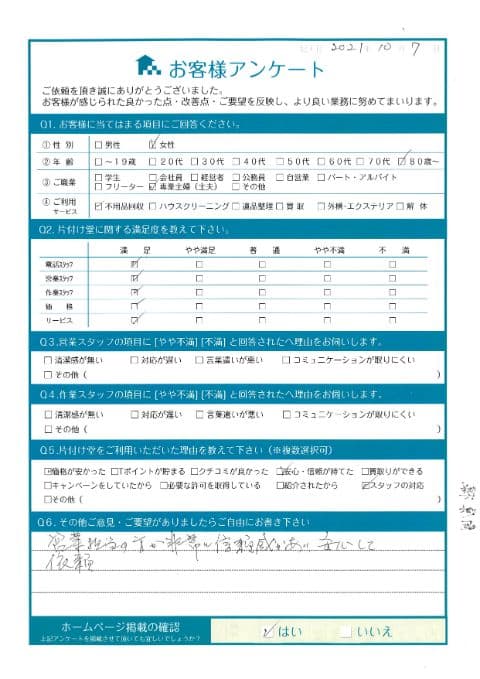 2021年10月7日
お客様アンケート
ご依頼を頂き誠にありがとうございました。
お客様が感じられた良かった点・改善点・ご要望を反映し、より良い業務に努めてまいります。
Q1. お客様に当てはまる項目にご回答ください。
① 性 別 □男性 ☑女性
② 年 齢 □〜19歳 □20代 □30代 □40代 □50代 □60代 □70代 ☑80歳〜
③ ご職業 □学生 □会社員 □経営者 □公務員 □自営業 □パート・アルバイト
□フリーター ☑専業主婦（主夫） □その他
④ ご利用サービス ☑不用品回収 □ハウスクリーニング □遺品整理 □買 取 □外構・エクステリア □解 体
Q2. 片付け堂に関する満足度を教えて下さい。
満 足 やや満足 普 通 やや不満 不 満
電話スタッフ ☑ □ □ □ □
営業スタッフ ☑ □ □ □ □
作業スタッフ ☑ □ □ □ □
価 格 ☑ □ □ □ □
サービス ☑ □ □ □ □
Q3.営業スタッフの項目に [やや不満] [不満] と回答されたへ理由をお伺いします。
□清潔感が無い □対応が遅い □言葉遣いが悪い □コミュニケーションが取りにくい
□その他 ( )
Q4.作業スタッフの項目に [やや不満] [不満] と回答されたへ理由をお伺いします。
□清潔感が無い □対応が遅い □言葉遣いが悪い □コミュニケーションが取りにくい
□その他 ( )
Q5.片付け堂をご利用いただいた理由を教えて下さい（※複数選択可）
☑価格が安かった □Tポイントが貯まる □クチコミが良かった ☑安心・信頼が持てた □買取りができる
□キャンペーンをしていたから □必要な許可を取得している □紹介されたから ☑スタッフの対応
□その他 ( )
Q6. その他ご意見・ご要望がありましたらご自由にお書き下さい
営業担当の方が非常に信頼感があり 安心して
依頼
ホームページ掲載の確認 ☑はい □いいえ
上記アンケートを掲載させて頂いても宜しいでしょうか？